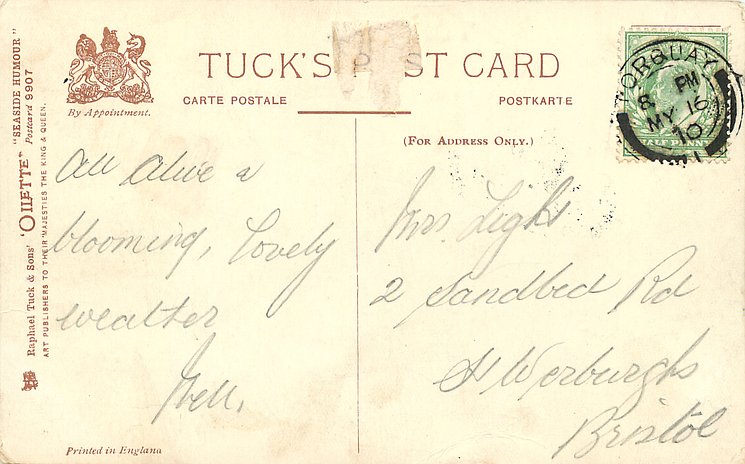 TUCK'S POST CARD
CARTE POSTALE
POSTKARTE
By Appointment.
(For Address Only.)
Raphael Tuck & Sons' "OILETTE" "SEASIDE HUMOUR" Postcard 9907
ART PUBLISHERS TO THEIR MAJESTIES THE KING & QUEEN.
TORQUAY
8 PM
MY 16
10
HALF PENNY
All alive &
blooming, lovely
weather
Nell.
Mrs. Light
2 Sandbed Rd
St Werburghs
Bristol
Printed in England